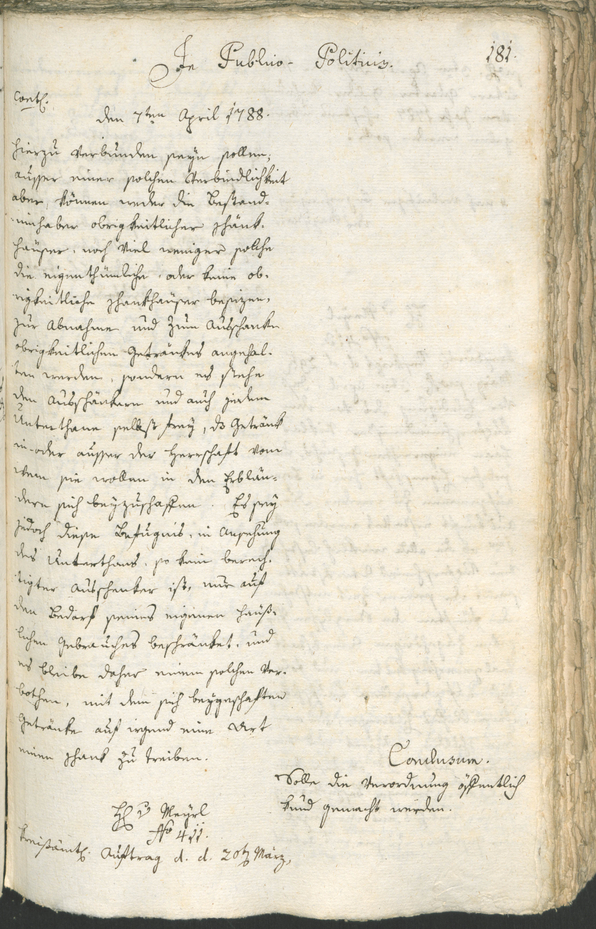 In Publico-Politicis.
181.
Cont.
den 7ten April 1788.
hierzu verbunden seyn sollen,
ausser einer solchen Verbindlichkeit
aber, können weder die Bestand-
inhaber obrigkeitlicher schänk-
häuser, noch viel weniger solche
die eigenthümliche, oder keine ob-
rigkeitliche schankhäuser besizen,
zur Abnahme und zum Ausschanke
obrigkeitlichen Getränkes angehal-
ten werden, sondern es stehe
den Ausschänkern und auch jedem
Unterthane selbst frey, das Getränk
in- oder ausser der Herrschaft von
wem sie wollen in den Erblän-
dern sich beyzuschaffen. Es sey
jedoch diese Befugnis, in Ansehung
des Unterthans, so kein berech-
tigter Ausschenker ist, nur auf
den Bedarf seines eigenen häuß-
lichen Gebrauches beschränket, und
es bleibe daher einem solchen ver-
bothen, mit dem sich beygeschaften
Getränke auf irgend eine Art
einen schank zu treiben.
Conclusum.
Solle die Verordnung öffentlich
kund gemacht werden.
H 3 Meyrl
No 411.
Kreisämtl. Auftrag d. d. 20ten März,